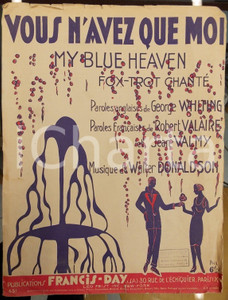 VOUS N'AVEZ QUE MOI
MY BLUE HEAVEN
FOX-TROT CHANTÉ
Paroles anglaises de George WHITING
Paroles Françaises de Robert VALAIRE
Jean VALMY
Musique de Walter DONALDSON
PUBLICATIONS FRANCIS-DAY S.A. 30, RUE DE L'ECHIQUIER, PARIS X